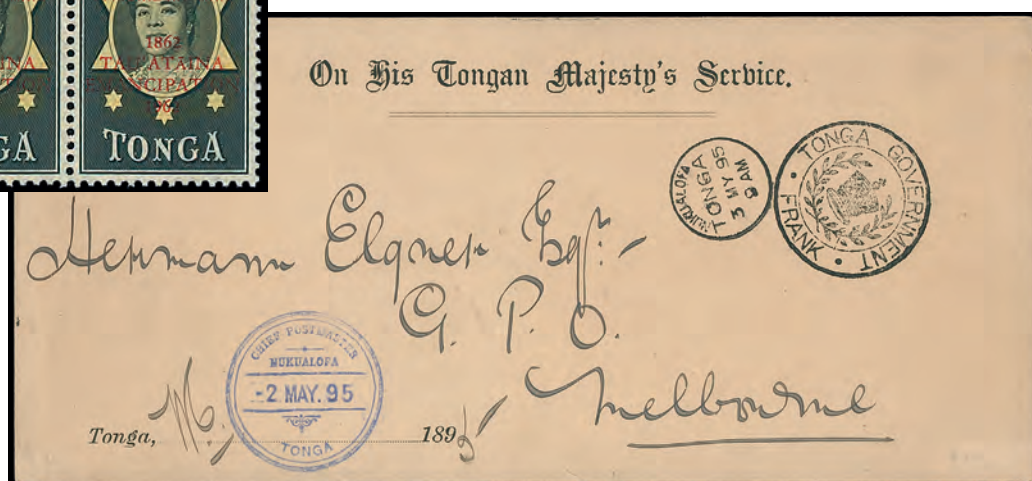 1862
TAU'ATAINA
EMANCIPATION
1962
GA
TONGA
On His Tongan Majesty's Service.
NUKUALOFA
TONGA
3 MY 95
9 AM
TONGA GOVERNMENT
• FRANK •
Hermann Elgner Esqr.-
G. P. O.
Melbourne
CHIEF POSTMASTER
NUKUALOFA
-2 MAY. 95
TONGA
Tonga, 1895